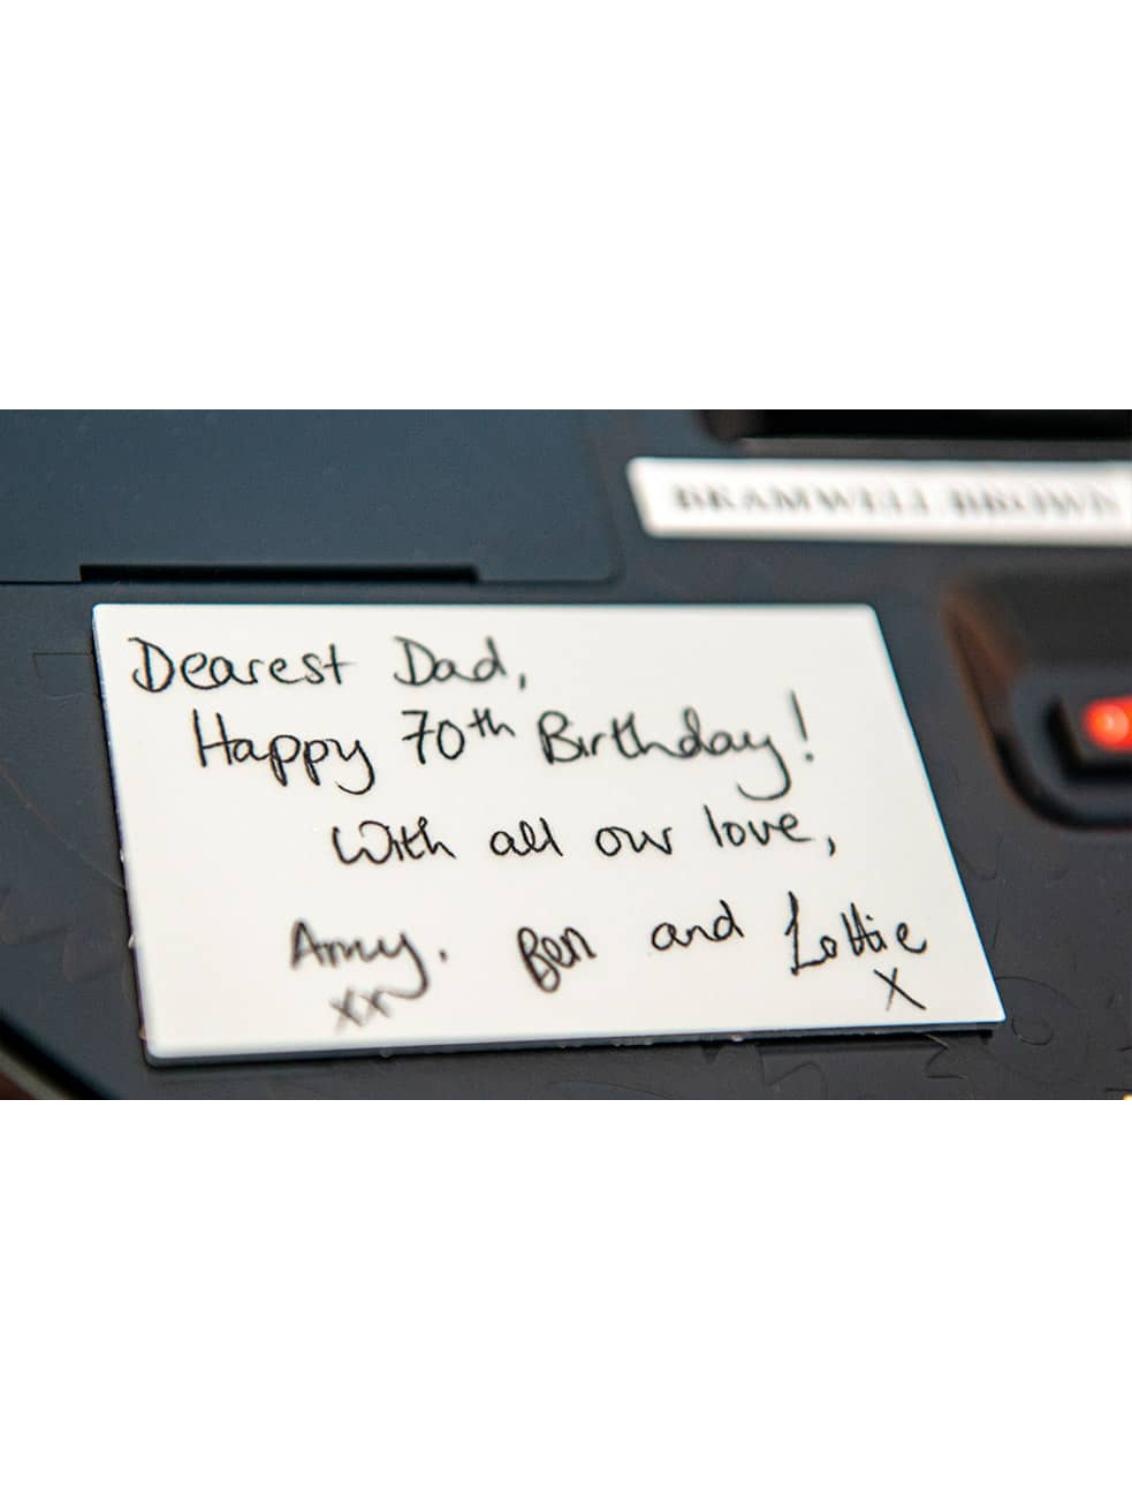 BRAMWELL BROWN
Dearest Dad,
Happy 70th Birthday!
With all our love,
Amy. Ben and Lottie
xx x